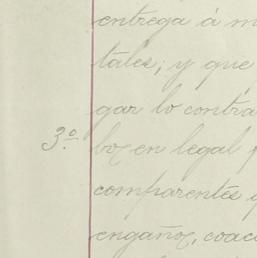 entrega á m
tales; y que
gar lo contra
3º boz en legal
comparentes q
engaños, coac